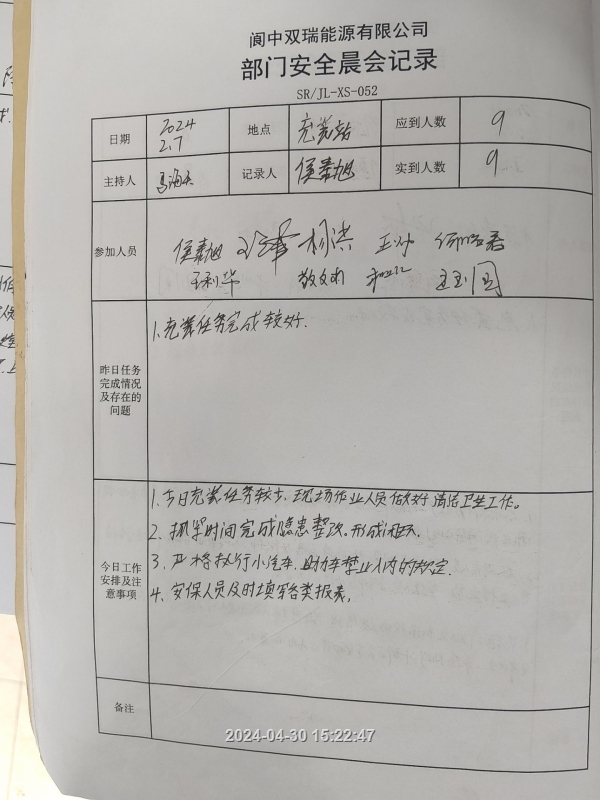 阆中双瑞能源有限公司
部门安全晨会记录
SR/JL-XS-052
日期 2024 2.7 地点 充装站 应到人数 9
主持人 记录人 侯素旭 实到人数 9
参加人员 侯素旭 杨洪
王利华
1.充装任务完成较好.
昨日任务
完成情况
及存在的
问题
1.今日充装任务较大、现场作业人员做好清洁卫生工作。
2、抓紧时间完成隐患整改.形成闭环.
今日工作
安排及注
意事项
3、严格执行小汽车、助力车禁止入内的规定.
4、安保人员及时填写各类报表,
备注
2024-04-30 15:22:47